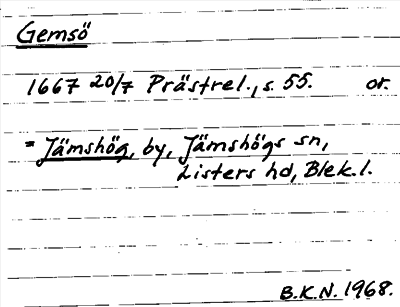 Gemsö
1667 20/7 Prästrel., s. 55. or.
= Jämshög, by, Jämshögs sn,
Listers hd, Blek. l.
B.K.N. 1968.